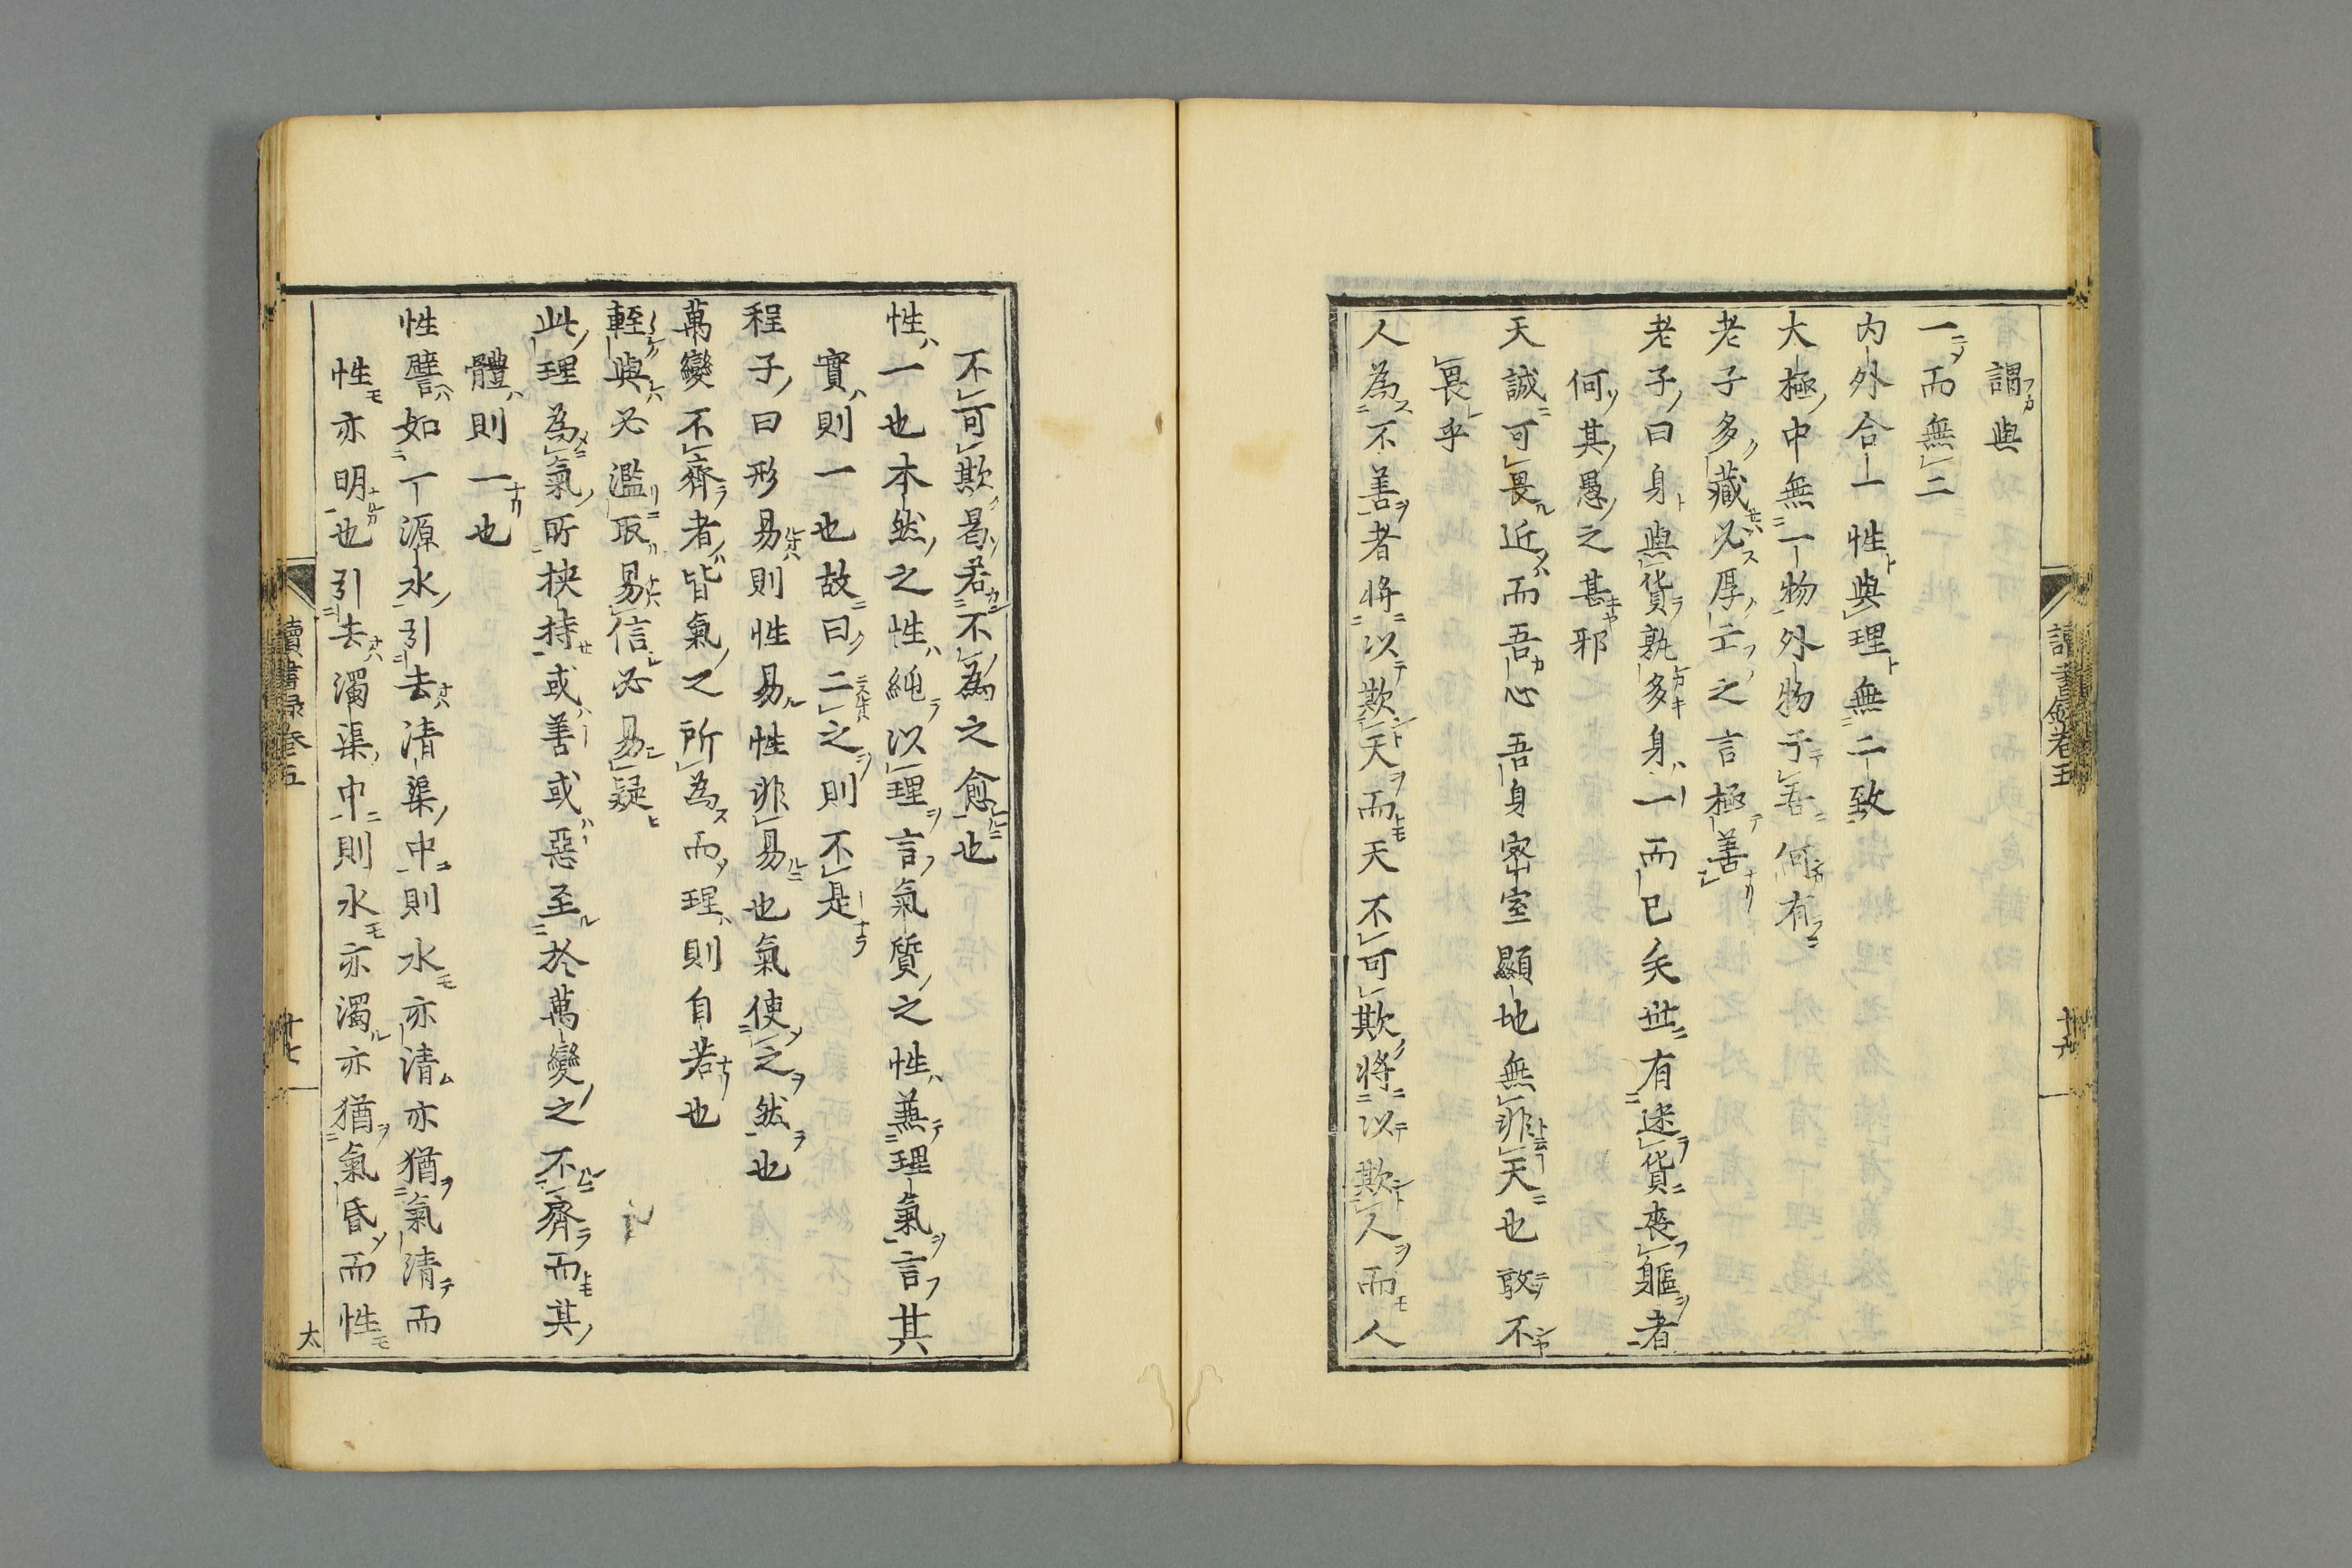 讀書錄卷五
謂與
一而無二
内外合一性與理無二致
太極中無一物外物於吾何有
老子多藏必厚亡之言極善
老子曰身與貨孰多身一而已矣世有迷貨喪軀者
何其愚之甚邪
天誠可畏近而吾心吾身密室顯地無非天也敢不
畏乎
人為不善者將以欺天而天不可欺將以欺人而人
不可欺曷若不為之愈也
性一也本然之性純以理言氣質之性兼理氣言其
實則一也故曰二之則不是
程子曰形易則性易性非易也氣使之然也
萬變不齊者皆氣之所為而理則自若也
輕與必濫取易信必易疑
此理為氣所挾持或善或惡至於萬變之不齊而其
體則一也
性譬如一源水引去清渠中則水亦清亦猶氣清而
性亦明也引去濁渠中則水亦濁亦猶氣昏而性
讀書録卷五
十七
太